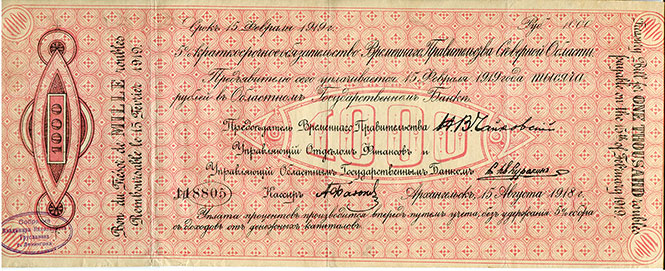 Срокъ 15 Февраля 1919 г. Руб. 1000
5% краткосрочное обязательство Временнаго Правительства Северной Области.
Предъявителю сего уплачивается 15 Февраля 1919 года тысяча
рублей в Областном Государственном Банке.
Председатель Временнаго Правительства Н. В. Чайковский
Управляющий Отделом Финансов и
Управляющий Областным Государственным Банком
1000
118805 Кассир Архангельск, 15 Августа 1918 г.
Уплата процентов производится вперед путем учета, без удержания 5% сбора
с доходов от денежных капиталов.
1000
Bon du Trésor de MILLE roubles
Remboursable le 15 Février 1919.
Treasury Bill for ONE THOUSAND roubles
payable on the 15th of February 1919.